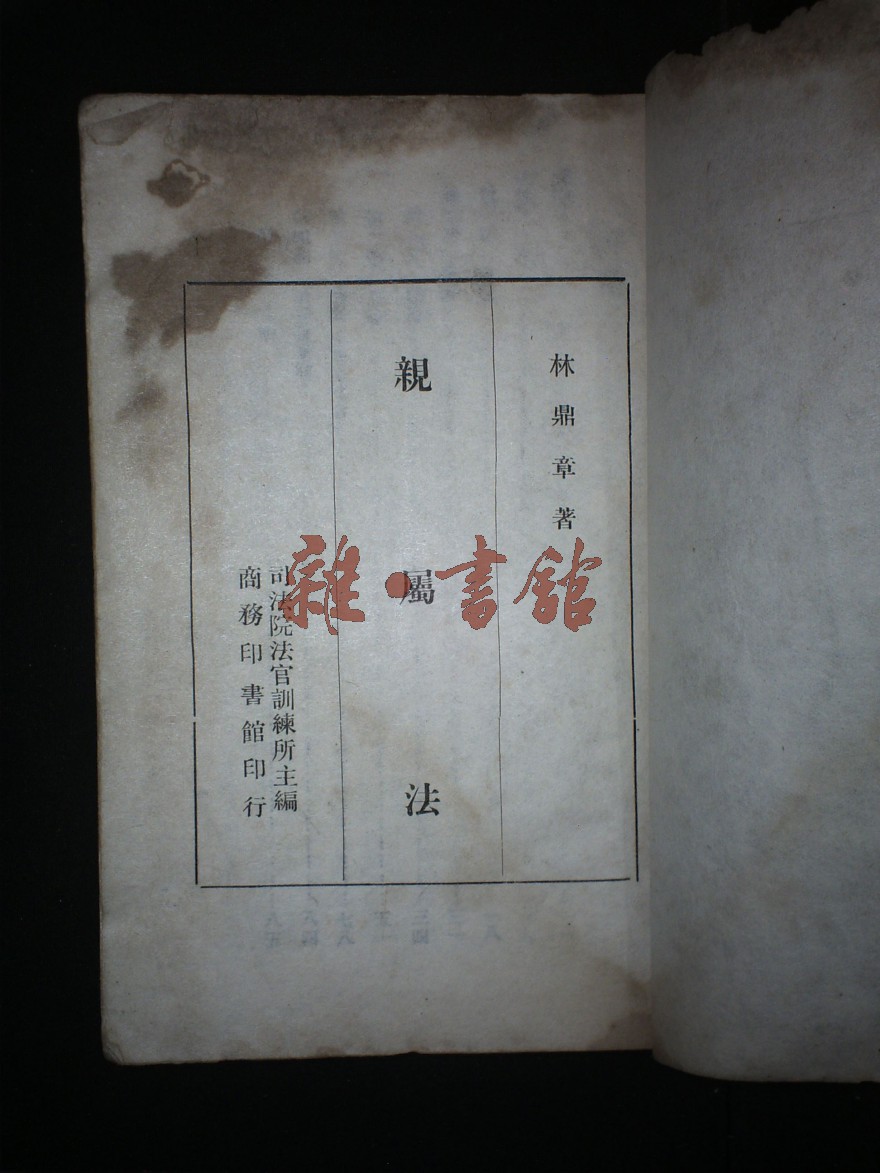 林鼎章著
親屬法
司法院法官訓練所主編
商務印書館印行
雜·書館